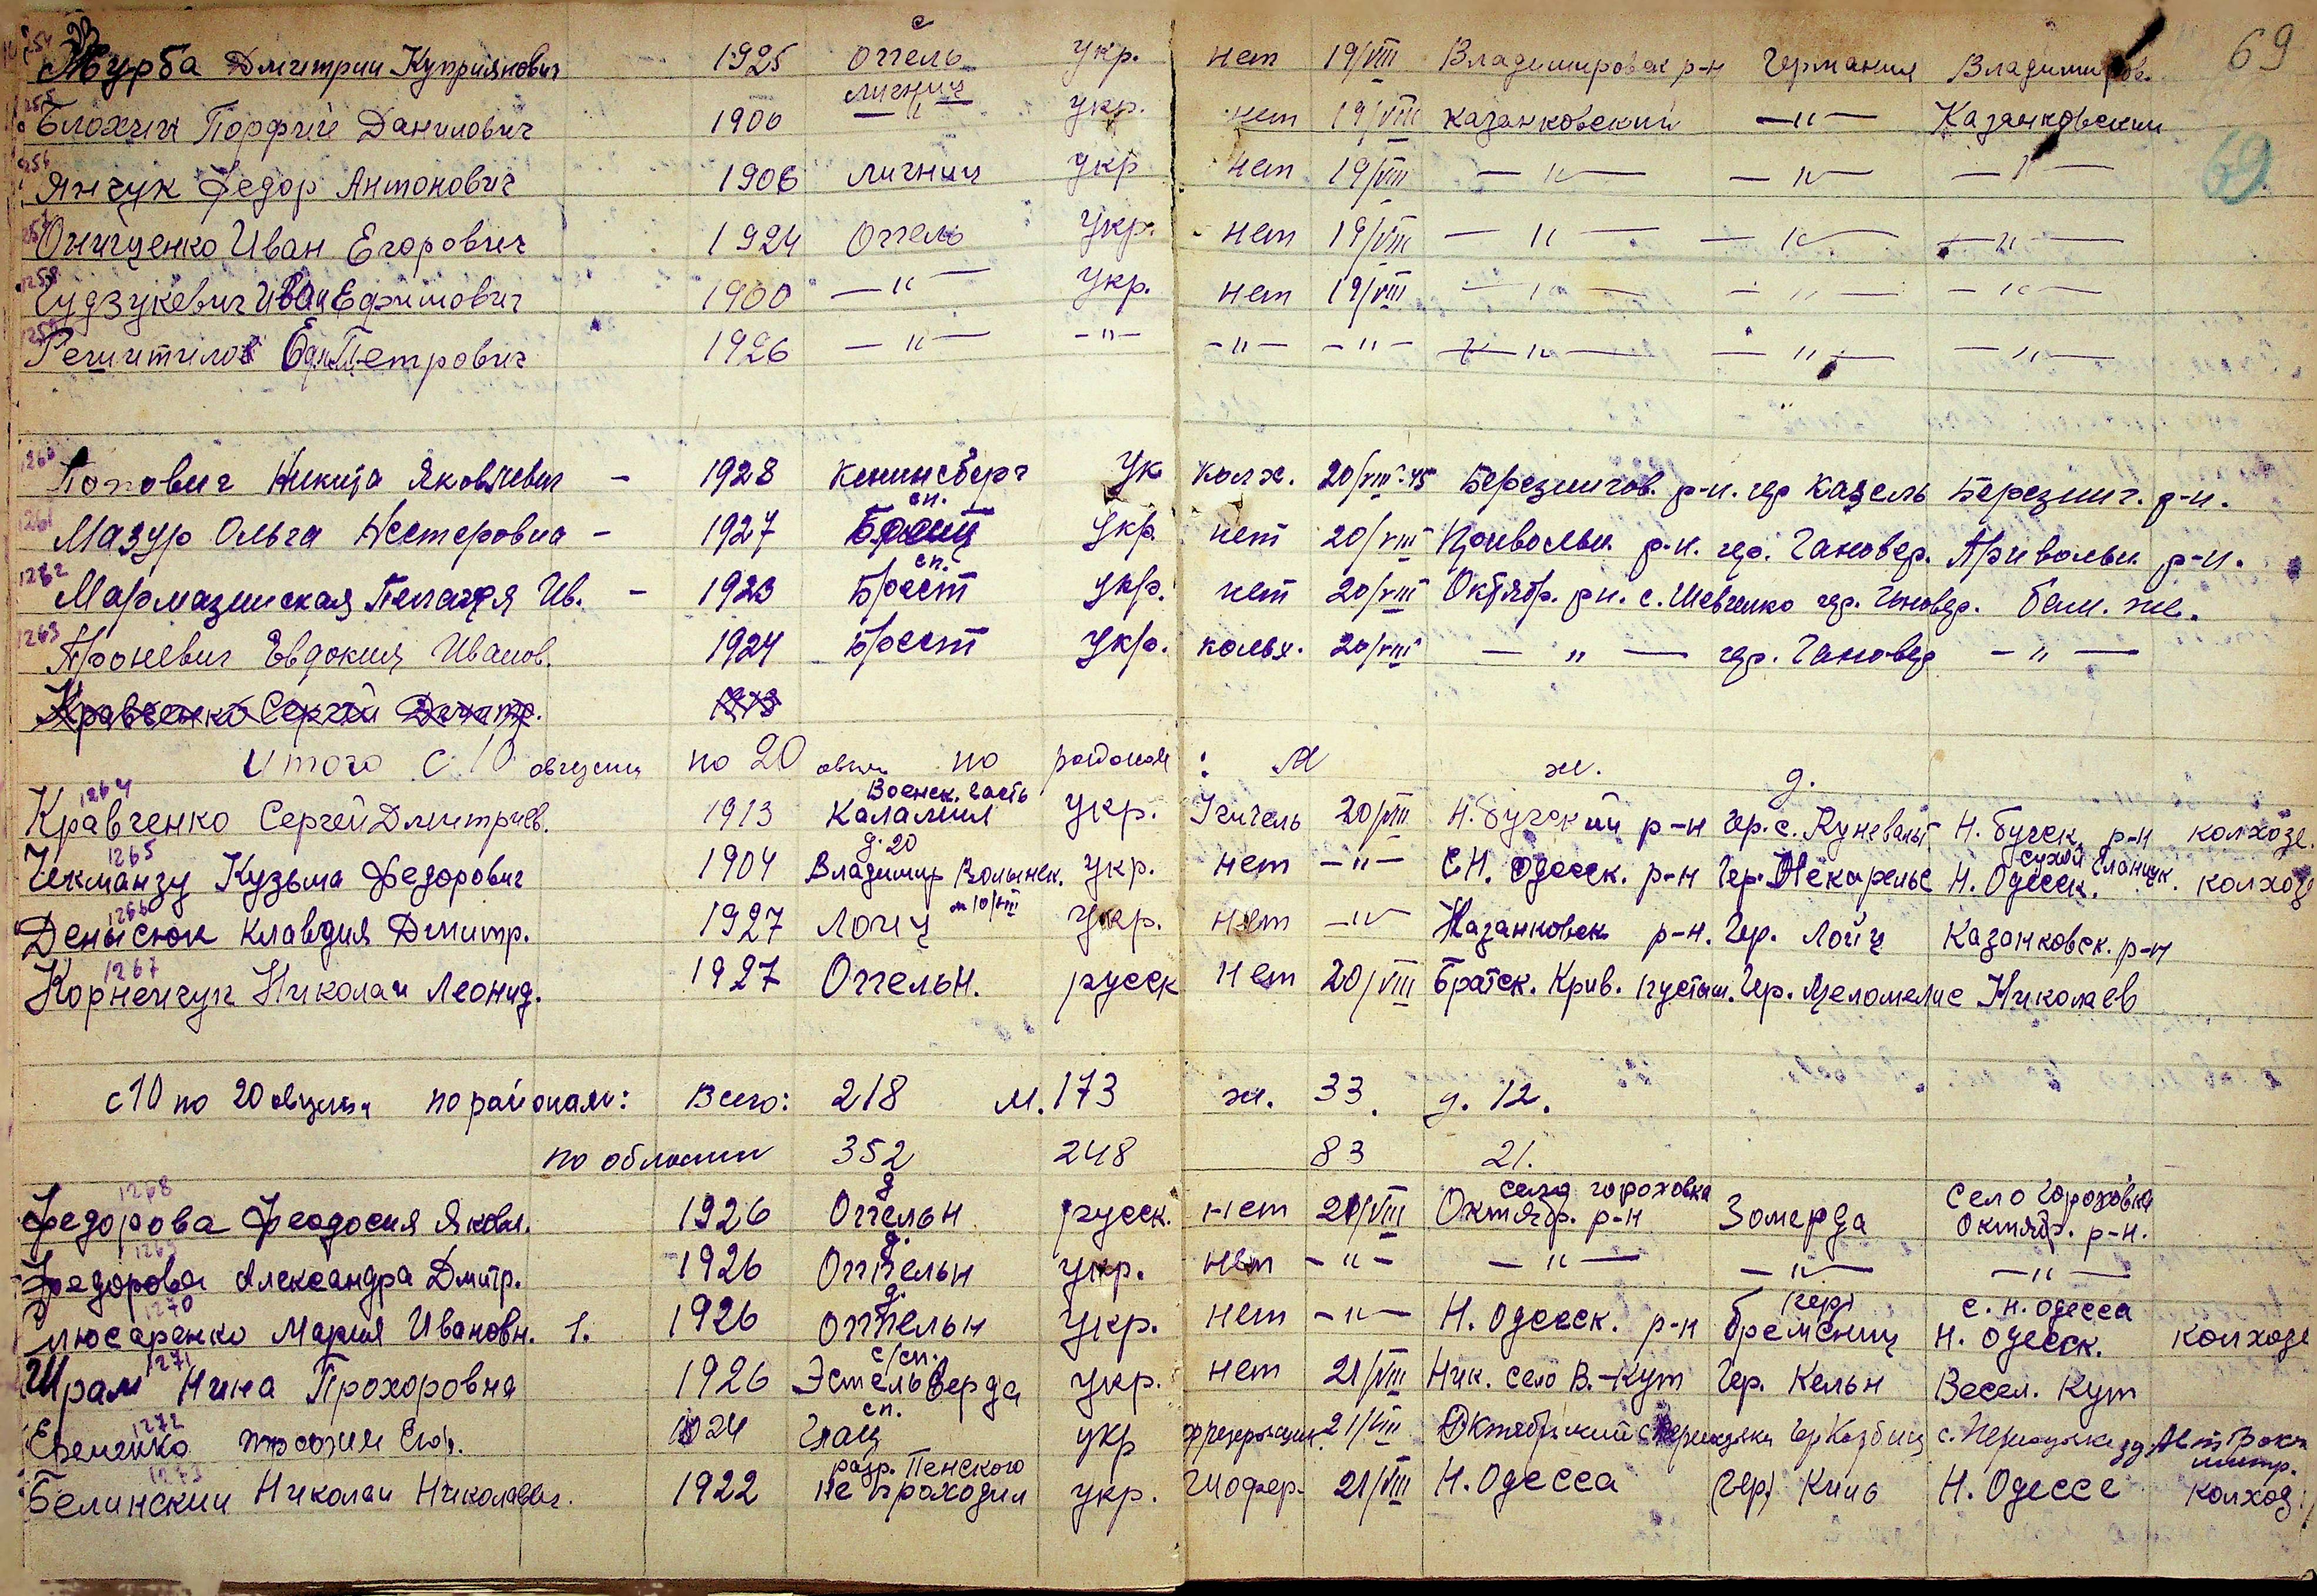 1254 Журба Дмитрий Куприянович 1925 с Оппель укр. нет 19/VIII Владимировск р-н Германия Владимиров. 69
1255 Блохин Порфий Данилович 1900 Лигниц —"— укр. нет 19/VIII Казанковский —"— Казанковский
1256 Янчук Федор Антонович 1906 Лигниц укр нет 19/VIII —"— —"— —"— 69
1257 Онищенко Иван Егорович 1924 Оппель укр. нет 19/VIII —"— —"— —"—
1258 Гудзукевич Иван Ефимович 1900 —"— укр. нет 19/VIII —"— —"— —"—
1259 Решитилов Петрович 1926 —"— —"— —"— —"— —"— —"— —"—
1260 Попович Никита Яковлевич - 1928 Кенинсберг Ук колх. 20/VIII-45 Березнигов. р-н. гер Касель Березниг. р-н.
1261 Мазур Ольга Нестеровна - 1927 сп. укр. нет 20/VIII Привольн. р-н. гер. Гановер. Привольн р-н.
1262 Мармазинская Пелагея Ив. - 1923 сп. Брест укр. нет 20/VIII Октябр. рн. с. Шевченко гер. Гановер. бат. же.
1263 Проневич Евдокия Иванов. 1924 Брест укр. колх. 20/VIII —"— гер. Гановер —"—
Кравченко Сергей Дмитр. 1913
Итого с 10 августа по 20 авг. по районам : М ж. д.
1264 Кравченко Сергей Дмитриев. 1913 Военск. часть Каламил укр. Учитель 20/VIII Н. Бугский р-н Гер. с. Куневальт Н. Бугск. р-н колхозе.
1265 Чекманзу Кузьма Федорович 1904 д. 20 Владимир Волынск. укр. нет —"— СН. Одесск. р-н Гер. Некарельс Н. Одесск. сухой Еланчук. колхоз
1266 Денысюк Клавдия Дмитр. 1927 Лоиц 10/VIII укр. нет —"— Казанковск р-н. Гер. Лойц Казанковск. р-н
1267 Корнейчук Николай Леонид. 1927 Оппельн. русск нет 20/VIII Братск. Крив. пустош. Гер. Меломелис Николаев
с 10 по 20 августа по районам: Всего: 218 м. 173 ж. 33. д. 12.
по области 352 248 83 21.
1268 Федорова Феодосия Яковл. 1926 д Оппельн русск. нет 21/VIII село Гороховка Октябр. р-н Зомерда Село Гороховка Октябр. р-н.
1269 Федорова Александра Дмитр. 1926 д. Оппельн укр. нет —"— —"— —"— —"—
1270 Слюсаренко Мария Ивановн. 1. 1926 д. Оппельн укр. нет —"— Н. Одесск. р-н (гер) Бремсниц с. Н. Одесса Н. Одесск. колхозе
1271 Шрам Нина Прохоровна 1926 с/сп. Эстельверда укр. нет 21/VIII Ник. село В.-Кут Гер. Кельн Весел. Кут
1272 Еременко 1924 сп. Глац укр 21/VIII Октябрьский
1273 Белинский Николай Николаевич. 1922 разр. Пенского Не проходил укр. Шофер. 21/VIII Н. Одесса (гер) Киль Н. Одессе колхоз